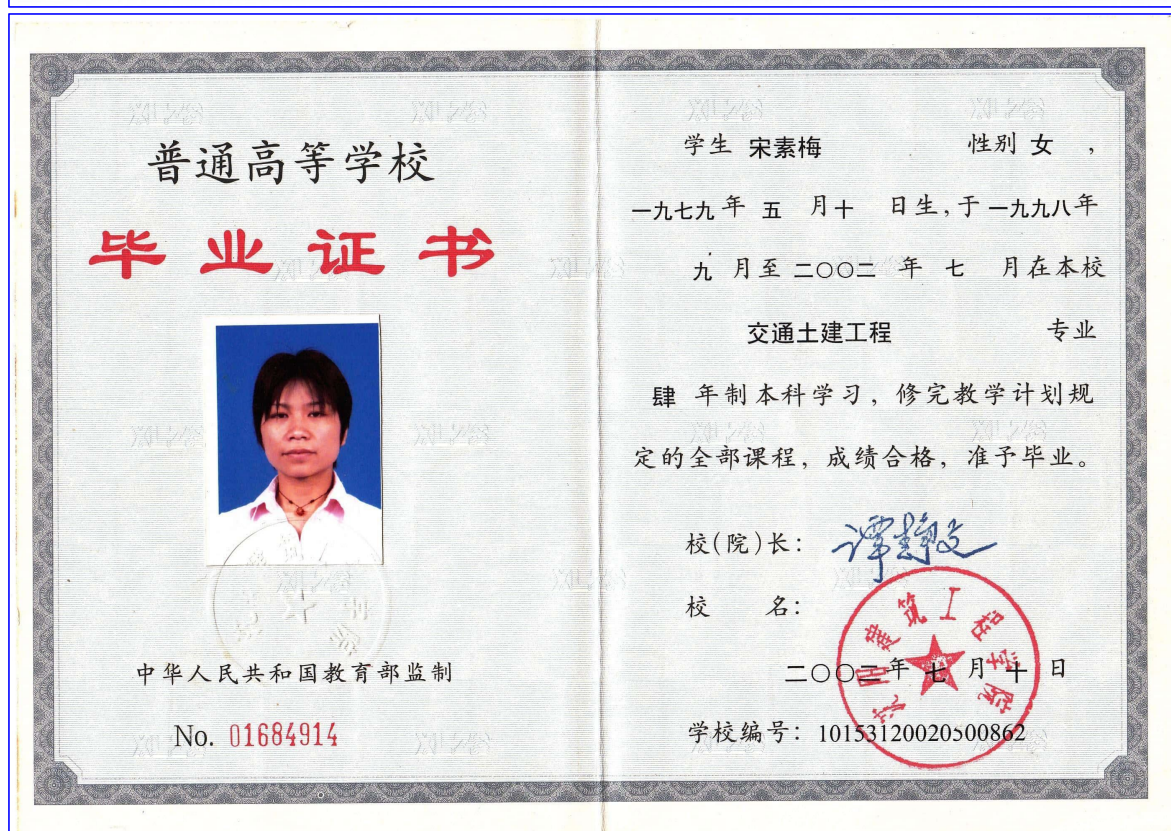 普通高等学校
毕业证书
中华人民共和国教育部监制
No. 01684914
学生 宋素梅 性别 女 ,
一九七九 年 五 月 十 日生,于 一九九八 年
九 月至 二〇〇二 年 七 月在本校
交通土建工程 专业
肆 年制本科学习,修完教学计划规
定的全部课程,成绩合格,准予毕业。
校(院)长: 谭静文
校 名:
沈阳建筑工程学院
二〇〇二 年 七 月 十 日
学校编号: 101531200205008​62